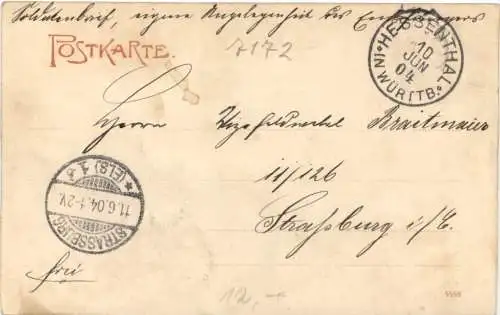 Soldatenbrief, eigene Angelegenheit des Empfängers
POSTKARTE.
7172
HESSENTHAL
10
JUN
04
IN WÜRTTB.
Herrn Vizefeldwebel Braitmaier
11/126
Straßburg i/E.
STRASSBURG
(ELS) 1
11.6.04.1-2V.
frei
12,-